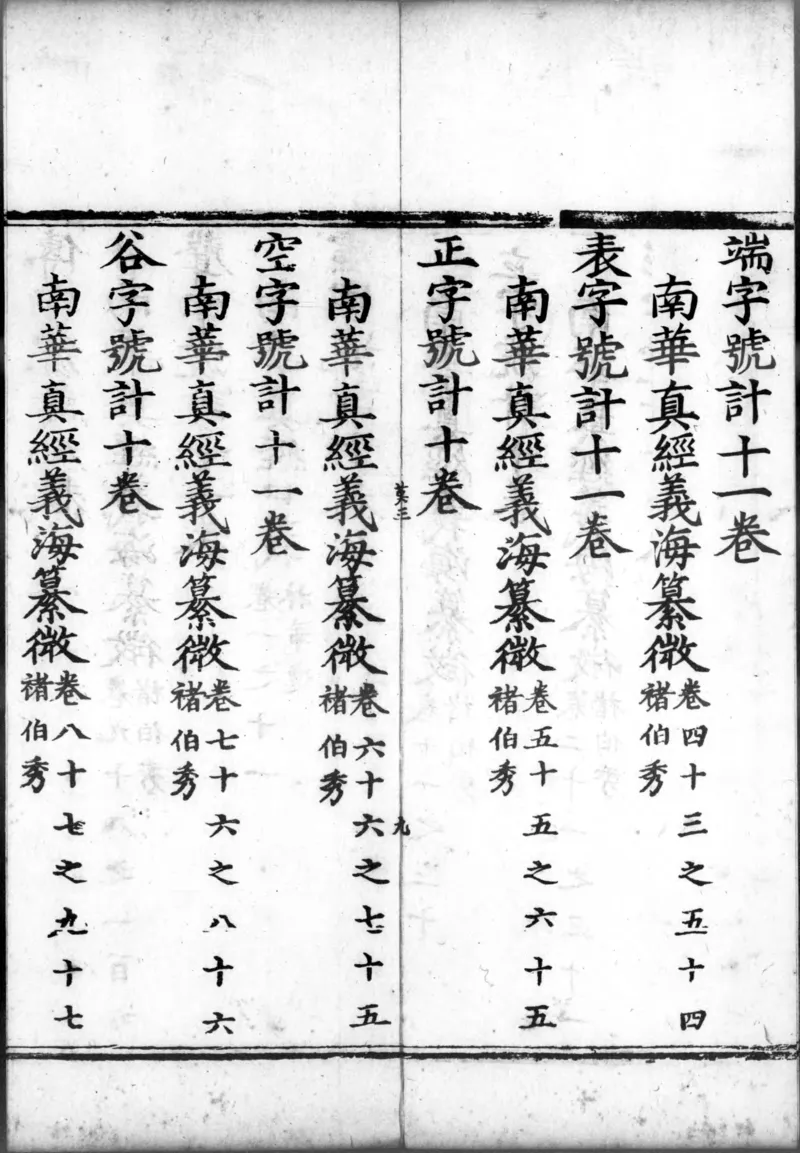 端字號計十一卷
南華真經義海纂微卷四十三之五十四
褚伯秀
表字號計十一卷
南華真經義海纂微卷五十五之六十五
褚伯秀
正字號計十卷
英三
九
南華真經義海纂微卷六十六之七十五
褚伯秀
空字號計十一卷
南華真經義海纂微卷七十六之八十六
褚伯秀
谷字號計十卷
南華真經義海纂微卷八十七之九十七
褚伯秀